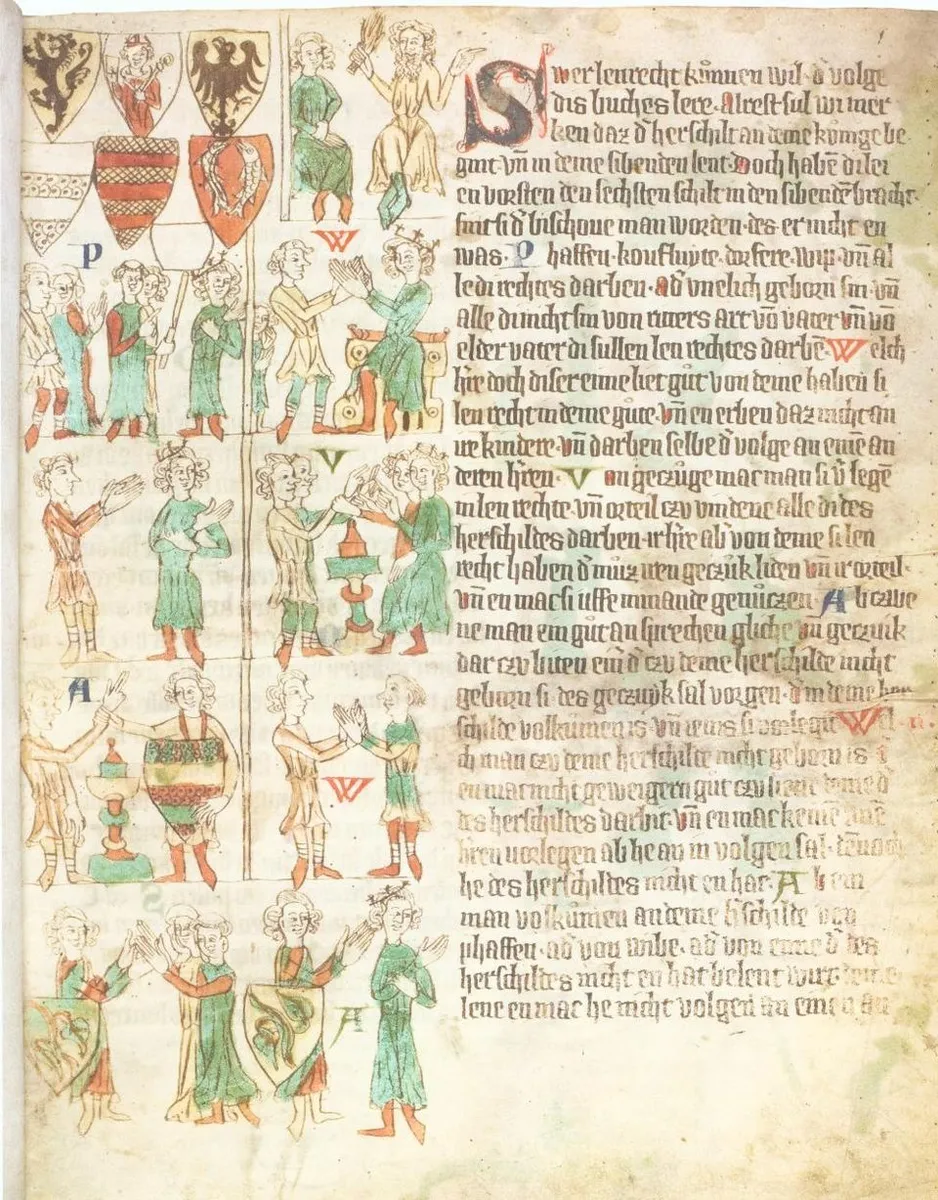 Swer lenrecht kunnen wil· d' volge
dis buches lere· Alrest sul wi mer
ken daz d' herschilt an deme kunige be
gint· vn in deme sibenden lent· Doch habē di lei
en vorsten den sechsten schilt in den sibendē bracht·
sint si d' bischoue man worden· des er nicht en
was· Phaffen· koufluyte· dorfere· wip· vn al
le di rechtes darben· ad' vnelich geborn sin· vn
alle di nicht sin von ritters art vō vater vn vō
elder vater di sullen len rechtes darbē· Welch
h're doch diser eime liet gut von deme haben si
len recht in deme gute· vn en erben daz nicht an
ire kindere· vn darben selbe d' volge an eine an
deren h'ren· Von geczuge mac man si v'legē
in len rechte· vn orteil czu vindene alle di des
herschildes darben· ir h're ab' von deme si len
recht haben d' muz iren geczuk liden vn ir orteil·
vn en mac si uffe nimande genuczen· Ab czwe
ne man ein gut an sprechen gliche vn geczuik
dar czu biten ein d' czu deme herschilde nicht
geborn si· des geczuyk sal vorgen· d' in deme her
schilde volkumen is· vn ienis si vorlegit· Wel
ch man czu deme herschilde nicht geborn is
en mac nicht geweigern gut czu liene deme d'
des herschildes darbit· vn en mac keine
h'ren vorlegen ab he an in volgen sal·
he des herschildes nicht en hat· Ab ein
man volkumen an deme h'schilde von
phaffen· ad' von wibe· ad' von eime d' des
herschildes nicht en hat belent wirt
lene en mac he nicht volgen an einen an
P
W
V
A
W
A